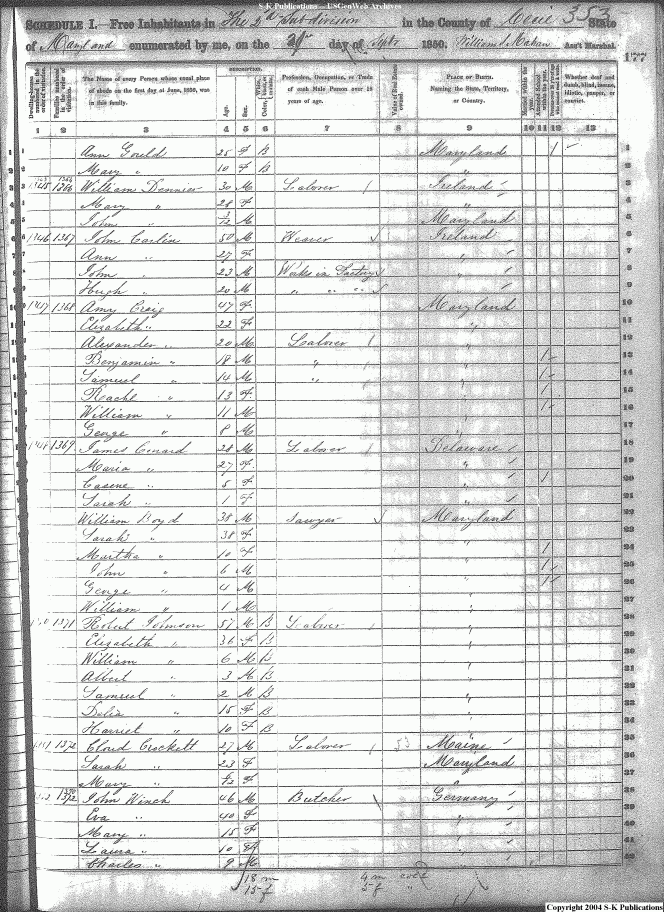 S-K Publications ... USGenWeb Archives
SCHEDULE I.—Free Inhabitants in The 2d Subdivision in the County of Cecil State 353
of Maryland enumerated by me, on the day of Sept 1850. William Ass't Marshal.
177
DESCRIPTION.
Dwelling-houses numbered in the order of visitation. Families numbered in the order of visitation. The Name of every Person whose usual place of abode on the first day of June, 1850, was in this family. Age. Sex. Color, White, black, or mulatto. Profession, Occupation, or Trade of each Male Person over 15 years of age. Value of Real Estate owned. PLACE OF BIRTH. Naming the State, Territory, or Country. Married within the year. Attended School within the year. Whether deaf and dumb, blind, insane, idiotic, pauper, or convict.
1 2 3 4 5 6 7 8 9 10 11 12 13
1 Ann Gould 25 F B Maryland 1 1
2 Mary " 10 F B " 2
3 1366 William 30 M Laborer Ireland 3
4 Mary " 28 F " 4
5 John " M Maryland 5
6 1346 1367 John Carlin 50 M Weaver Ireland 6
7 Ann " 27 F " 7
8 John " 23 M Works in Factory " 8
9 Hugh " 20 M " " " " 9
10 1347 1368 Amy Craig 47 F Maryland 10
11 Elizabeth " 22 F " 11
12 Alexander " 20 M Laborer " 12
13 Benjamin " 18 M " " 1 13
14 Samuel " 14 M " " 1 14
15 Rachl " 13 F " 1 15
16 William " 11 M " 1 16
17 George " 8 M " 17
18 1369 James 28 M Laborer Delaware 18
19 Maria " 27 F " 19
20 5 F " 1 20
21 Sarah " 1 F " 21
22 William Boyd 38 M Sawyer Maryland 22
23 Sarah " 38 F " 23
24 Martha " 10 F " 1 24
25 John " 6 M " 1 25
26 George " 4 M " 1 26
27 William " 1 M " 27
28 1371 Robert Johnson 57 M B Laborer " 28
29 Elizabeth " 36 F B " 29
30 William " 6 M B " 30
31 Albert " 3 M B " 31
32 Samuel " 2 M B " 32
33 Delia " 15 F B " 33
34 Harriet " 10 F B " 34
35 1372 Cloud Crockett 27 M Laborer 53 Maine 35
36 Sarah " 23 F Maryland 36
37 Mary " F " 37
38 John Winch 46 M Butcher Germany 38
39 Eva " 40 F " 39
40 Mary " 15 F " 40
41 Laura " 10 F " 41
42 Charles " 9 M " 42
18 m 4 m col'd
15 f 5 f "
Copyright 2004 S-K Publications